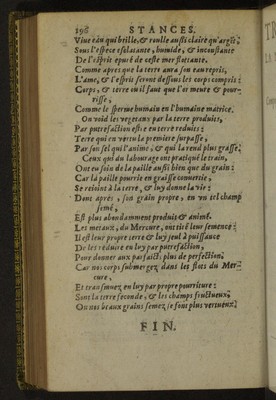 196 STANCES.
Viue eau qui brille, & roulle aussi claire qu'argēt,
Sous l'espece esclatante, humide, & inconstante
De l'esprit epuré de ceste mer flottante.
Comme apres que la terre aura son eau repris,
L'ame, & l'esprit seront dessous les corps compris:
Corps, & terre où il faut que l'or meure & pour-
risse,
Comme le sperme humain en l'humaine matrice.
On void les vegetaux par la terre produits,
Par putrefaction estre en terre reduits:
Terre qui en vertu la premiere surpasse,
Par son sel qui l'anime, & qui la rend plus grasse,
Ceux qui du labourage ont pratiqué le train,
Ont eu soin de la paille aussi bien que du grain:
Car la paille pourrie en graisse conuertie,
Se reioint à la terre, & luy donne la vie:
Dont apres, son grain propre, en vn tel champ
semé,
Est plus abondamment produit & animé.
Les metaux, du Mercure, ont tiré leur semence:
Il est leur propre terre & luy seul a puissance
De les reduire en luy par putrefaction,
Pour donner aux parfaicts plus de perfection,
Car nos corps submergez dans les flots du Mer-
cure,
Et transmuez en luy par propre pourriture:
Sont la terre feconde, & les champs fructueux,
Où nos beaux grains semez se font plus vertueux.
FIN.